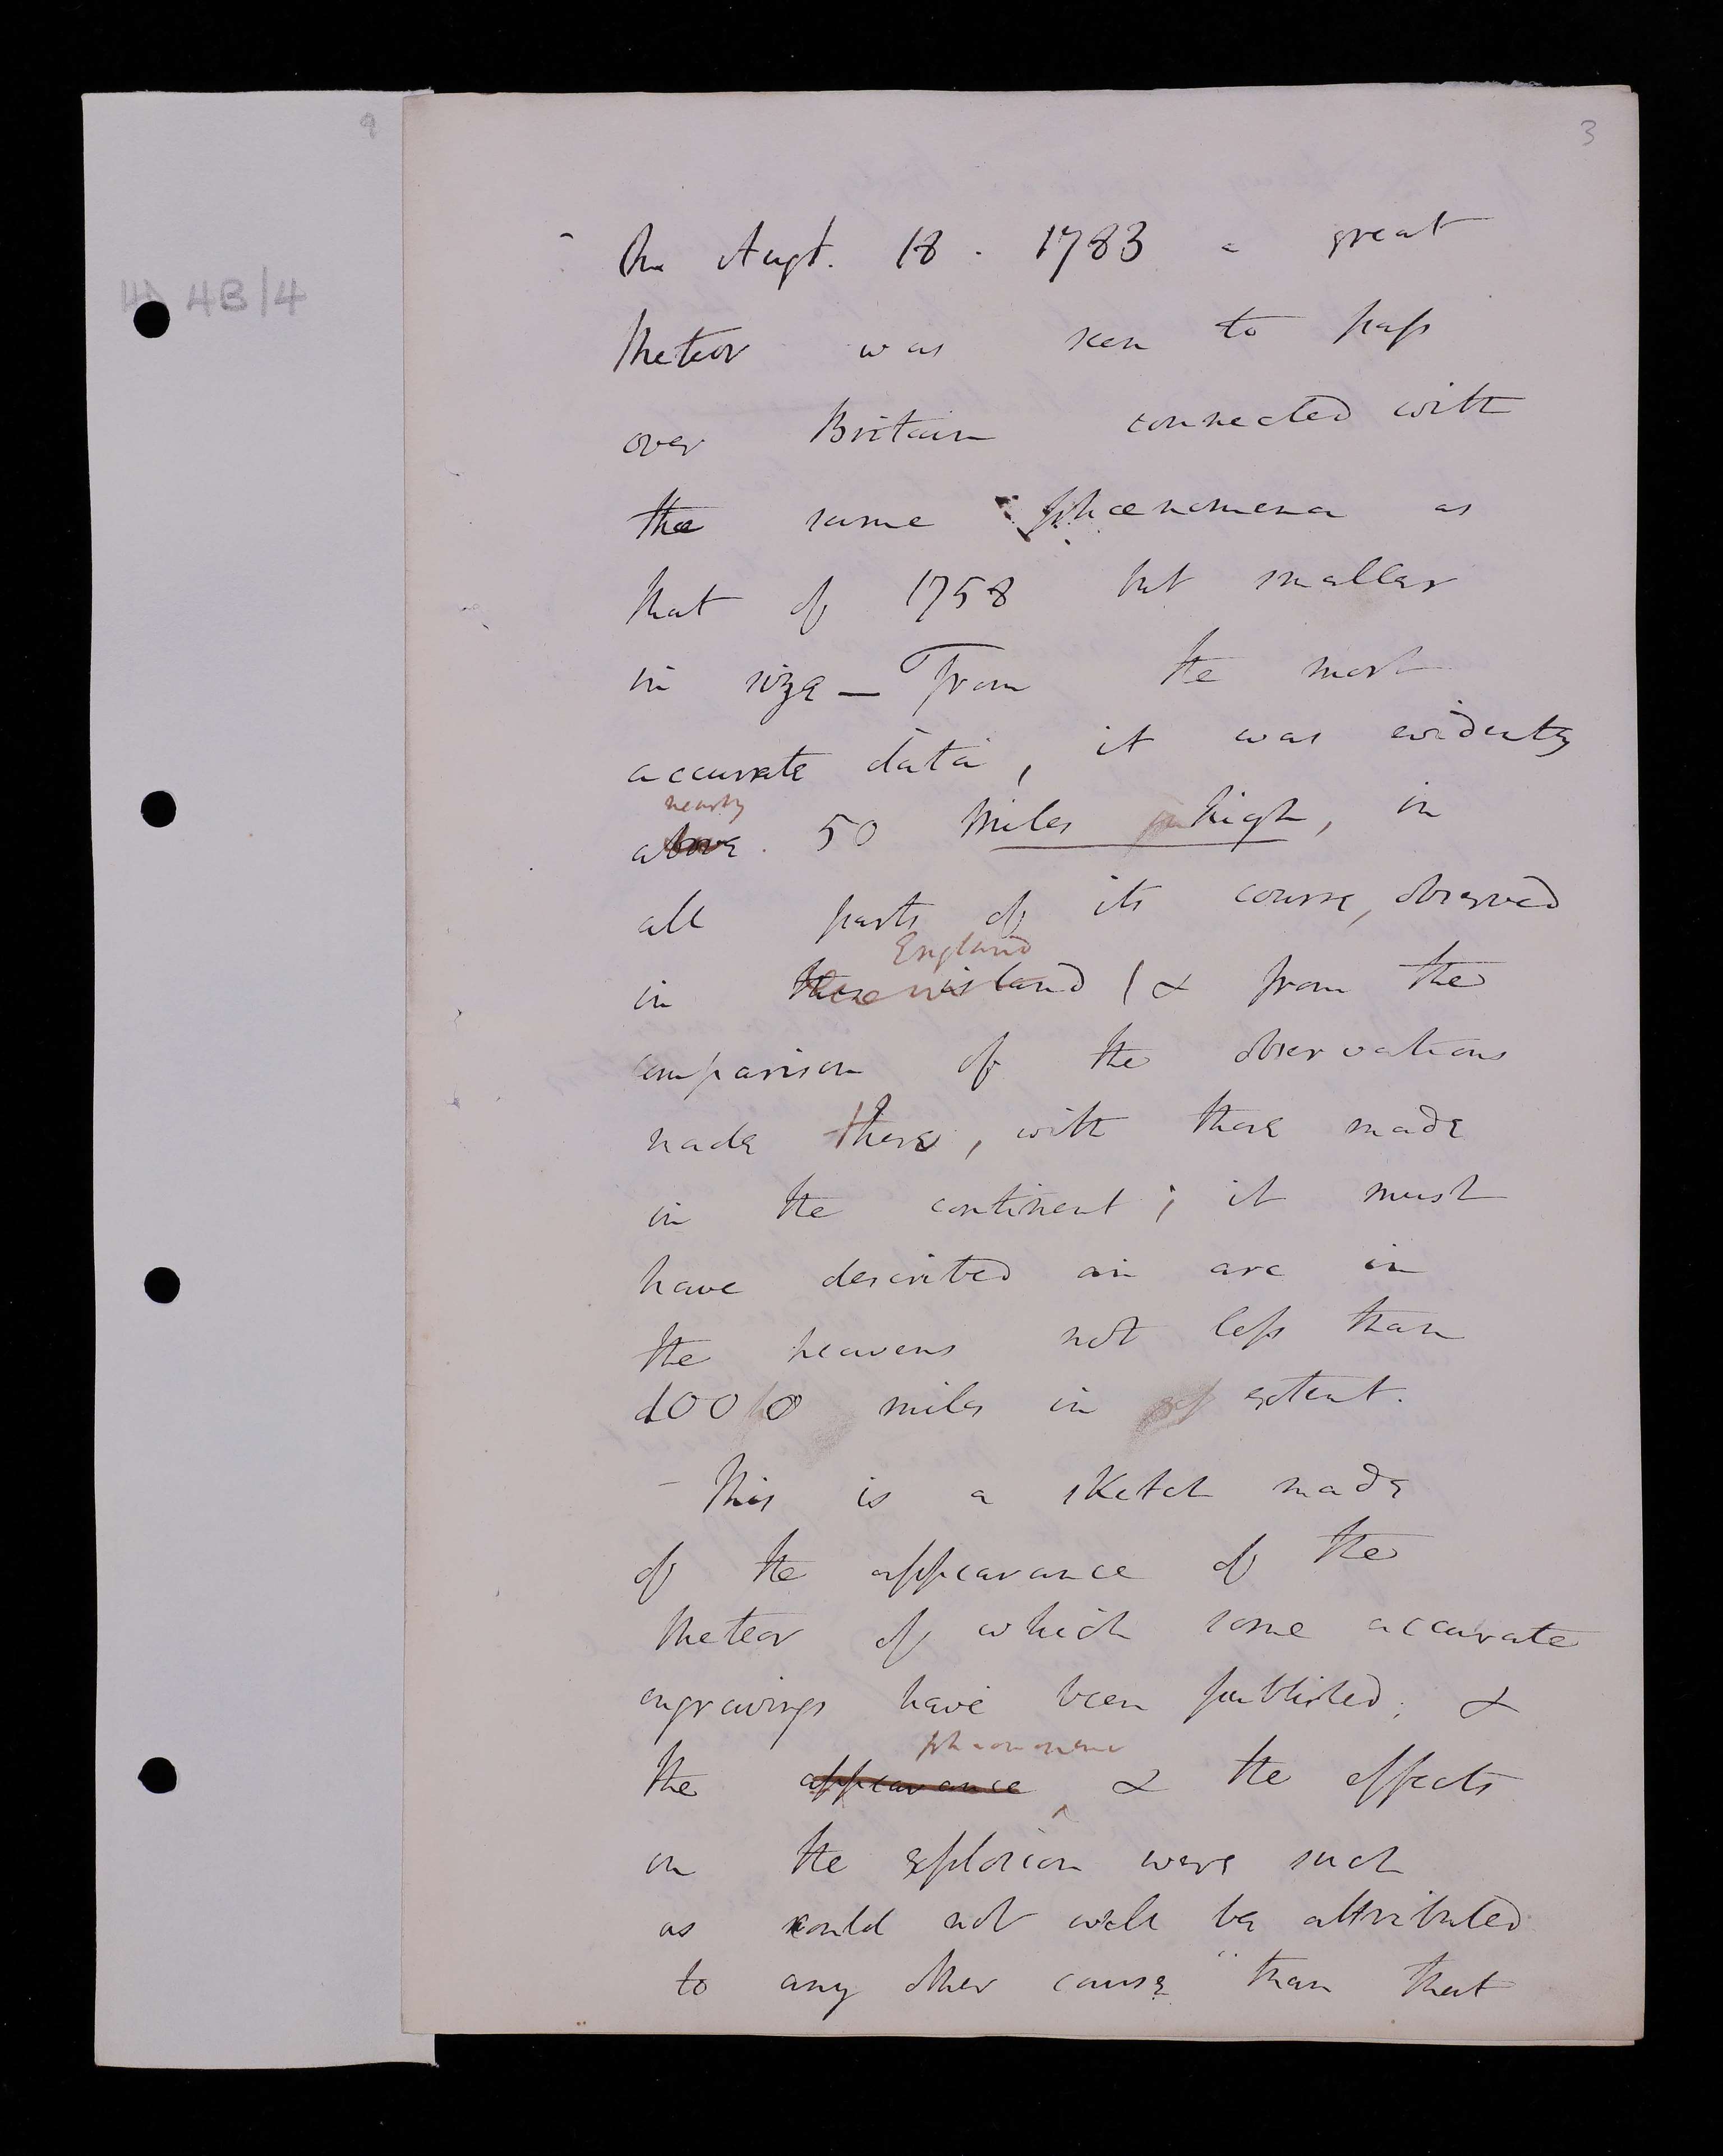 9
3
4B/4
- On Augt. 18. 1783 a great
Meteor was seen to pass
over Britain connected with
the same phænomena as
that of 1758 but smaller
in size — From the most
accurate data, it was evidently
nearly
above 50 miles high, in
all parts of its course, observed
England
in these island (& from the
comparison of the observations
made there, with those made
in the continent; it must
have described an arc in
the heavens not less than
1000 miles in extent.
- This is a sketch made
of the appearance of the
Meteor of which some accurate
engravings have been published; &
phænomena
the appearance & the effects
on the explosion were such
as could not well be attributed
to any other cause than that